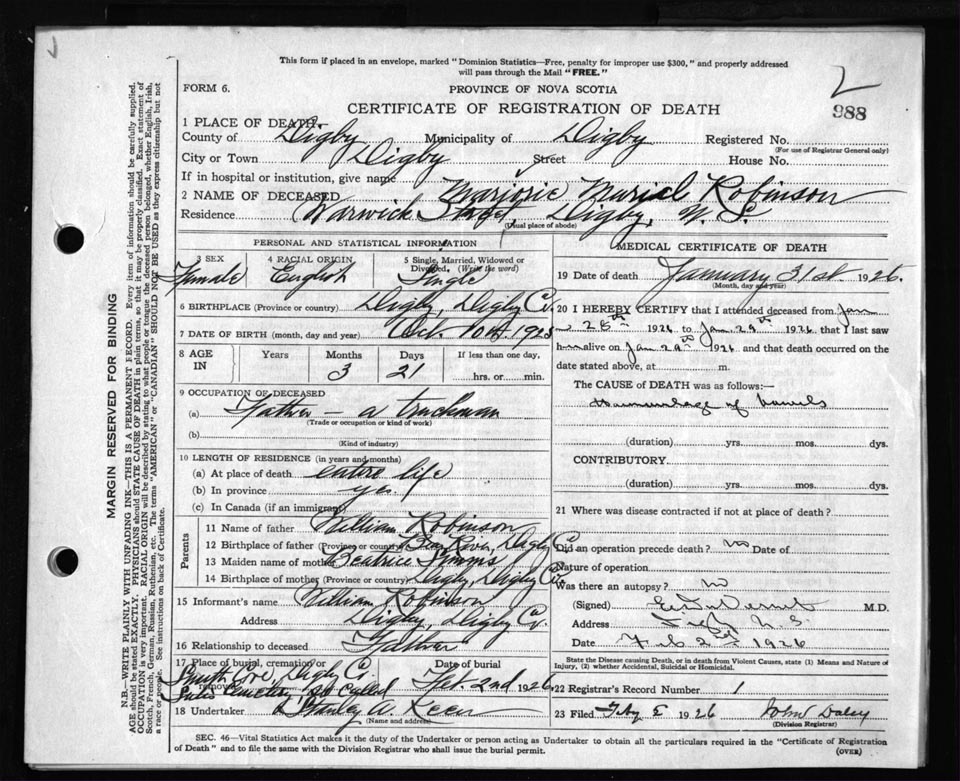 This form if placed in an envelope, marked "Dominion Statistics—Free, penalty for improper use $300," and properly addressed
will pass through the Mail "FREE."
FORM 6.
PROVINCE OF NOVA SCOTIA
988
CERTIFICATE OF REGISTRATION OF DEATH
1 PLACE OF DEATH
County of Digby Municipality of Digby Registered No.
(For use of Registrar General only)
City or Town Digby Street House No.
If in hospital or institution, give name
2 NAME OF DECEASED Marjorie Muriel Robinson
Residence Warwick Street, Digby, N. S.
(Usual place of abode)
PERSONAL AND STATISTICAL INFORMATION
3 SEX Female
4 RACIAL ORIGIN English
5 Single, Married, Widowed or
Divorced. (Write the word) Single
6 BIRTHPLACE (Province or country) Digby, Digby Co.
7 DATE OF BIRTH (month, day and year) Oct. 10th 1925
8 AGE
IN
Years Months Days If less than one day,
3 21 hrs. or min.
9 OCCUPATION OF DECEASED
(a) Father — a truckman
(Trade or occupation or kind of work)
(b)
(Kind of industry)
10 LENGTH OF RESIDENCE (in years and months)
(a) At place of death entire life
(b) In province yes
(c) In Canada (if an immigrant)
Parents
11 Name of father William Robinson
12 Birthplace of father (Province or country) Bear River, Digby Co
13 Maiden name of mother Beatrice Simms
14 Birthplace of mother (Province or country) Digby, Digby Co.
15 Informant's name William Robinson
Address Digby, Digby Co.
16 Relationship to deceased Father
17 Place of burial, cremation or removal Date of burial
Digby Co
Cemetery so called Feb. 2nd 1926
18 Undertaker Stanley A. Keen
(Name and address)
MEDICAL CERTIFICATE OF DEATH
19 Date of death January 31st 1926.
(Month, day and year)
20 I HEREBY CERTIFY that I attended deceased from Jan
28th 1926 to Jan 29th 1926 that I last saw
h alive on Jan 29th 1926 and that death occurred on
date stated above, at m.
The CAUSE of DEATH was as follows:—
Haemorrhage of bowels
(duration) yrs. mos. dys.
CONTRIBUTORY
(duration) yrs. mos. dys.
21 Where was disease contracted if not at place of death?
Did an operation precede death? no Date of
Nature of operation
Was there an autopsy? no
(Signed) M.D.
Address N.S.
Date Feb 2nd 1926
State the Disease causing Death, or in death from Violent Causes, state (1) Means and Nature of
Injury, (2) whether Accidental, Suicidal or Homicidal.
22 Registrar's Record Number 1
23 Filed 1926 John Daley
(Division Registrar)
SEC. 46—Vital Statistics Act makes it the duty of the Undertaker or person acting as Undertaker to obtain all the particulars required in the "Certificate of Registration
of Death" and to file the same with the Division Registrar who shall issue the burial permit.
(OVER)
MARGIN RESERVED FOR BINDING
N.B.—WRITE PLAINLY WITH UNFADING INK—THIS IS A PERMANENT RECORD. Every item of information should be carefully supplied.
AGE should be stated EXACTLY. PHYSICIANS should STATE CAUSE OF DEATH in plain terms, so that it may be properly classified. Exact statement of
OCCUPATION is very important. RACIAL ORIGIN will be described by stating to what people or tongue the deceased person belonged, whether English, Irish,
Scotch, French, German, Russian, Ruthenian, etc. The terms "AMERICAN" or "CANADIAN" SHOULD NOT BE USED as they express citizenship but not
a race or people. See instructions on back of Certificate.